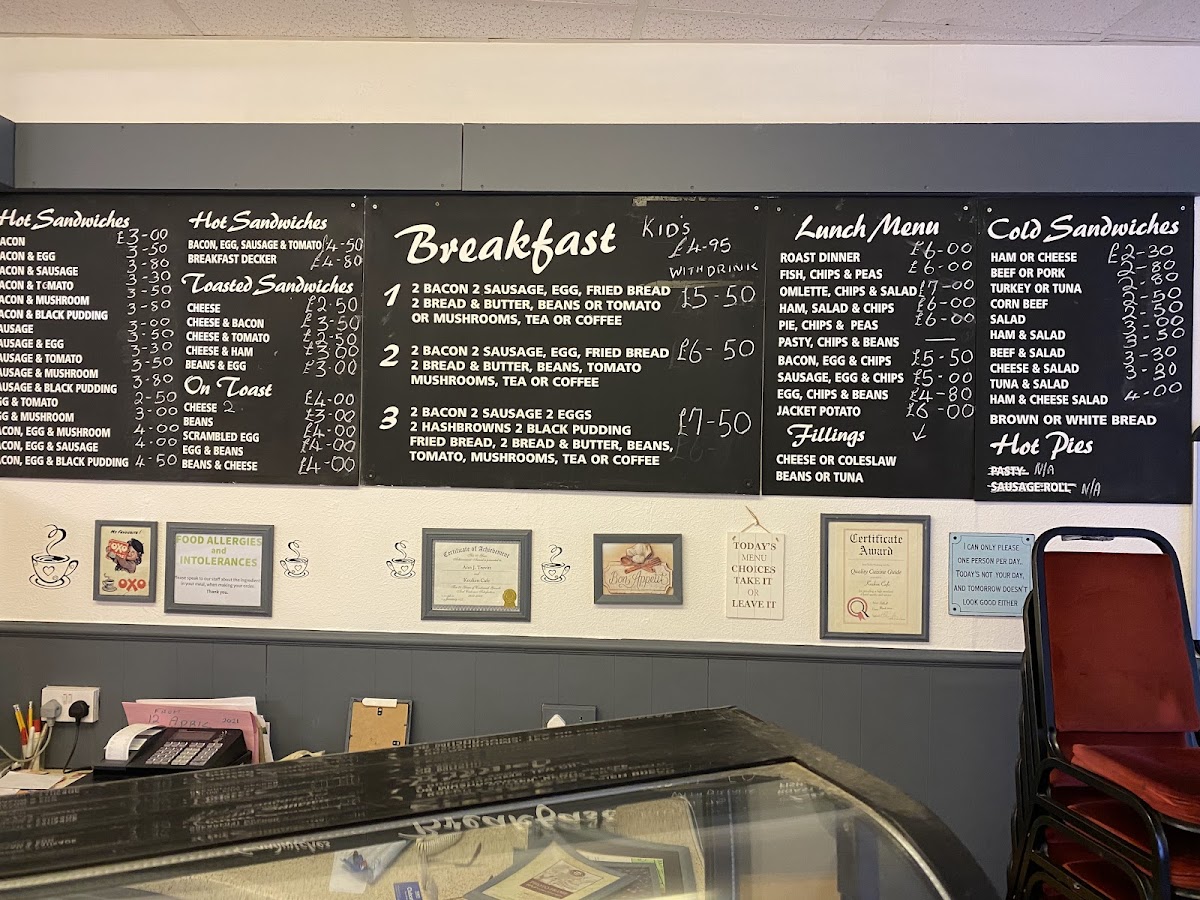 Hot Sandwiches
BACON £3-00
BACON & EGG 3-50
BACON & SAUSAGE 3-80
BACON & TOMATO 3-30
BACON & MUSHROOM 3-50
BACON & BLACK PUDDING 3-80
SAUSAGE 3-00
SAUSAGE & EGG 3-50
SAUSAGE & TOMATO 3-30
SAUSAGE & MUSHROOM 3-50
SAUSAGE & BLACK PUDDING 3-80
EGG & TOMATO 2-50
EGG & MUSHROOM 3-00
BACON, EGG & MUSHROOM 4-00
BACON, EGG & SAUSAGE 4-00
BACON, EGG & BLACK PUDDING 4-50
Hot Sandwiches
BACON, EGG, SAUSAGE & TOMATO £4-50
BREAKFAST DECKER £4-80
Toasted Sandwiches
CHEESE £2-50
CHEESE & BACON £3-50
CHEESE & TOMATO £2-50
CHEESE & HAM £3-00
BEANS & EGG £3-00
On Toast
CHEESE 2 £4-00
BEANS £3-00
SCRAMBLED EGG £4-00
EGG & BEANS £4-00
BEANS & CHEESE £4-00
Breakfast
KID'S
£4-95
WITH DRINK
1 2 BACON 2 SAUSAGE, EGG, FRIED BREAD £5-50
2 BREAD & BUTTER, BEANS OR TOMATO
OR MUSHROOMS, TEA OR COFFEE
2 2 BACON 2 SAUSAGE, EGG, FRIED BREAD £6-50
2 BREAD & BUTTER, BEANS, TOMATO
MUSHROOMS, TEA OR COFFEE
3 2 BACON 2 SAUSAGE 2 EGGS £7-50
2 HASHBROWNS 2 BLACK PUDDING
FRIED BREAD, 2 BREAD & BUTTER, BEANS,
TOMATO, MUSHROOMS, TEA OR COFFEE
Lunch Menu
ROAST DINNER £6-00
FISH, CHIPS & PEAS £6-00
OMLETTE, CHIPS & SALAD £7-00
HAM, SALAD & CHIPS £6-00
PIE, CHIPS & PEAS £6-00
PASTY, CHIPS & BEANS —
BACON, EGG & CHIPS £5-50
SAUSAGE, EGG & CHIPS £5-00
EGG, CHIPS & BEANS £4-80
JACKET POTATO £6-00
Fillings
CHEESE OR COLESLAW
BEANS OR TUNA
Cold Sandwiches
HAM OR CHEESE £2-30
BEEF OR PORK 2-80
TURKEY OR TUNA 2-80
CORN BEEF 2-50
SALAD 2-50
HAM & SALAD 3-00
BEEF & SALAD 3-50
CHEESE & SALAD 3-30
TUNA & SALAD
HAM & CHEESE SALAD 4-00
BROWN OR WHITE BREAD
Hot Pies
PASTY N/A
SAUSAGE ROLL N/A
My Favourite!
OXO
OXO
FOOD ALLERGIES
and
INTOLERANCES
Please speak to our staff about the ingredients
in your meal, when making your order.
Thank you.
Certificate of Achievement
Bon Appetit
TODAY'S
MENU
CHOICES
TAKE IT
OR
LEAVE IT
Certificate
Award
Quality Cuisine Guide
I CAN ONLY PLEASE
ONE PERSON PER DAY.
TODAY'S NOT YOUR DAY,
AND TOMORROW DOESN'T
LOOK GOOD EITHER
FROM
12 APRIL 2021